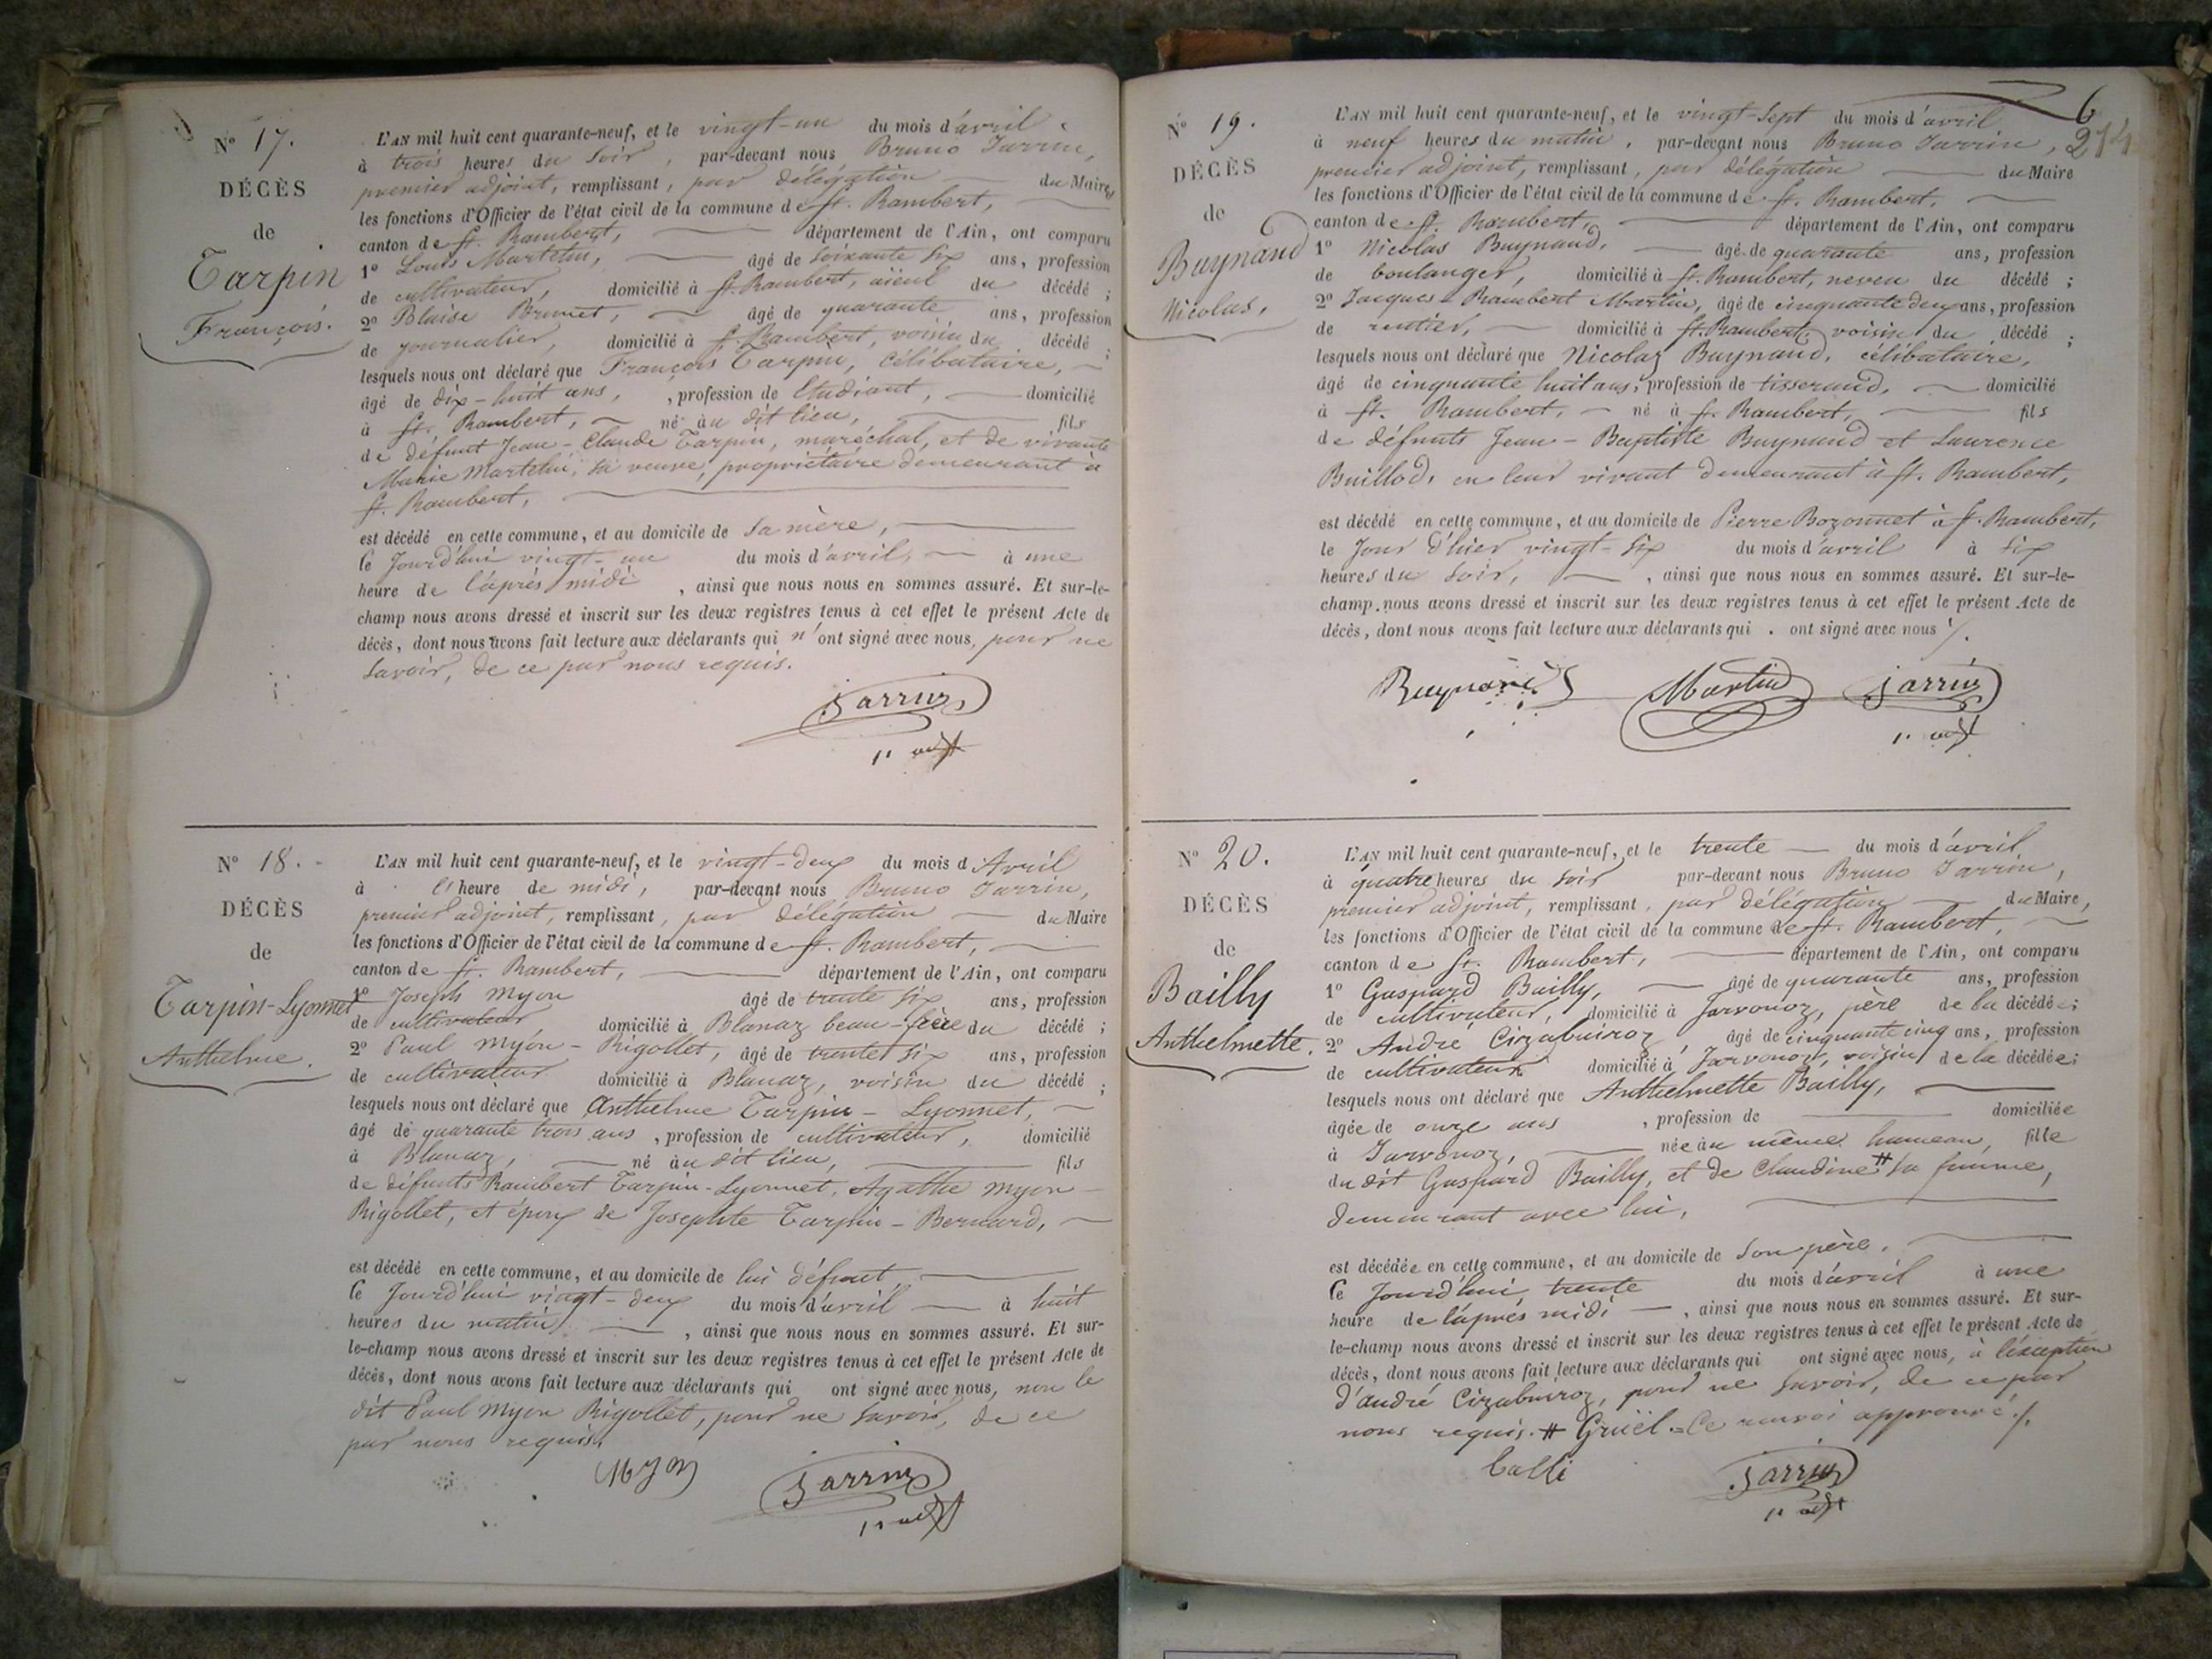 N° 17.
DÉCÈS
de
Tarpin
François.
L'AN mil huit cent quarante-neuf, et le vingt-un du mois d'avril
à trois heures du soir, par-devant nous Bruno Jarrin,
premier adjoint, remplissant, par délégation du Maire,
les fonctions d'Officier de l'état civil de la commune de St. Rambert,
canton de St. Rambert, département de l'Ain, ont comparu
1° Louis Martelin, âgé de soixante six ans, profession
de cultivateur, domicilié à St. Rambert, aïeul du décédé ;
2° Blaise Brunet, âgé de quarante ans, profession
de journalier, domicilié à St. Rambert, voisin du décédé ;
lesquels nous ont déclaré que François Tarpin, célibataire,
âgé de dix-huit ans, , profession de Etudiant, domicilié
à St. Rambert, né au dit lieu, fils
de défunt Jean-Claude Tarpin, maréchal, et de vivante
Marie Martelin, sa veuve, propriétaire demeurant à
St. Rambert,
est décédé en cette commune, et au domicile de sa mère,
le Jourd'hui vingt-un du mois d'avril, à une
heure de l'après midi , ainsi que nous nous en sommes assuré. Et sur-le-
champ nous avons dressé et inscrit sur les deux registres tenus à cet effet le présent Acte de
décès, dont nous avons fait lecture aux déclarants qui n'ont signé avec nous, pour ne
savoir, de ce par nous requis.
Jarrin
1er adjt
N° 18.
DÉCÈS
de
Tarpin-Lyonnet
Anthelme.
L'AN mil huit cent quarante-neuf, et le vingt-deux du mois d'Avril
à l'heure de midi, par-devant nous Bruno Jarrin,
premier adjoint, remplissant, par délégation du Maire
les fonctions d'Officier de l'état civil de la commune de St. Rambert,
canton de St. Rambert, département de l'Ain, ont comparu
1° Joseph Myon âgé de trente six ans, profession
de cultivateur, domicilié à Blanaz beau-frère du décédé ;
2° Paul Myon-Rigollet, âgé de trente six ans, profession
de cultivateur domicilié à Blanaz, voisin du décédé ;
lesquels nous ont déclaré que Anthelme Tarpin-Lyonnet,
âgé de quarante trois ans , profession de cultivateur, domicilié
à Blanaz, né au dit lieu, fils
de défunts Rambert Tarpin-Lyonnet, Agathe Myon-
Rigollet, et époux de Josephte Tarpin-Bernard,
est décédé en cette commune, et au domicile de lui défunt
le Jourd'hui vingt-deux du mois d'avril à huit
heures du matin, , ainsi que nous nous en sommes assuré. Et sur-
le-champ nous avons dressé et inscrit sur les deux registres tenus à cet effet le présent Acte de
décès, dont nous avons fait lecture aux déclarants qui ont signé avec nous, non le
dit Paul Myon Rigollet, pour ne savoir, de ce
par nous requis.
Myon Jarrin
1er adjt
6
214
N° 19.
DÉCÈS
de
Buynand
Nicolas,
L'AN mil huit cent quarante-neuf, et le vingt-sept du mois d'avril
à neuf heures du matin, par-devant nous Bruno Jarrin,
premier adjoint, remplissant, par délégation du Maire
les fonctions d'Officier de l'état civil de la commune de St. Rambert,
canton de St. Rambert, département de l'Ain, ont comparu
1° Nicolas Buynand, âgé de quarante ans, profession
de boulanger, domicilié à St. Rambert, neveu du décédé ;
2° Jacques-Rambert Martin, âgé de cinquante deux ans, profession
de rentier, domicilié à St. Rambert, voisin du décédé ;
lesquels nous ont déclaré que Nicolas Buynand, célibataire,
âgé de cinquante huit ans, profession de tisserand, domicilié
à St. Rambert, né à St. Rambert, fils
de défunts Jean-Baptiste Buynand et Laurence
Buillod, en leur vivant demeurant à St. Rambert,
est décédé en cette commune, et au domicile de Pierre Bozonnet à St. Rambert,
le Jour d'hier vingt-six du mois d'avril à six
heures du soir, , ainsi que nous nous en sommes assuré. Et sur-le-
champ nous avons dressé et inscrit sur les deux registres tenus à cet effet le présent Acte de
décès, dont nous avons fait lecture aux déclarants qui ont signé avec nous ./.
Buynand Martin Jarrin
1er adjt
N° 20.
DÉCÈS
de
Bailly
Anthelmette.
L'AN mil huit cent quarante-neuf, et le trente du mois d'avril
à quatre heures du soir par-devant nous Bruno Jarrin,
premier adjoint, remplissant, par délégation du Maire,
les fonctions d'Officier de l'état civil de la commune de St. Rambert,
canton de St. Rambert, département de l'Ain, ont comparu
1° Gaspard Bailly, âgé de quarante ans, profession
de cultivateur, domicilié à Javornoz, père de la décédée ;
2° André Cizabuiroz, âgé de cinquante cinq ans, profession
de cultivateur domicilié à Javornoz, voisin de la décédée ;
lesquels nous ont déclaré que Anthelmette Bailly,
âgée de onze ans , profession de domiciliée
à Javornoz, née au même hameau, fille
du dit Gaspard Bailly, et de Claudine # sa femme,
demeurant avec lui,
est décédée en cette commune, et au domicile de son père,
le Jourd'hui trente du mois d'avril à une
heure de l'après midi , ainsi que nous nous en sommes assuré. Et sur-
le-champ nous avons dressé et inscrit sur les deux registres tenus à cet effet le présent Acte de
décès, dont nous avons fait lecture aux déclarants qui ont signé avec nous, à l'exception
d'andré Cizabuiroz, pour ne savoir, de ce par
nous requis. # Gruël = Ce renvoi approuvé ./.
Jarrin
1er adjt